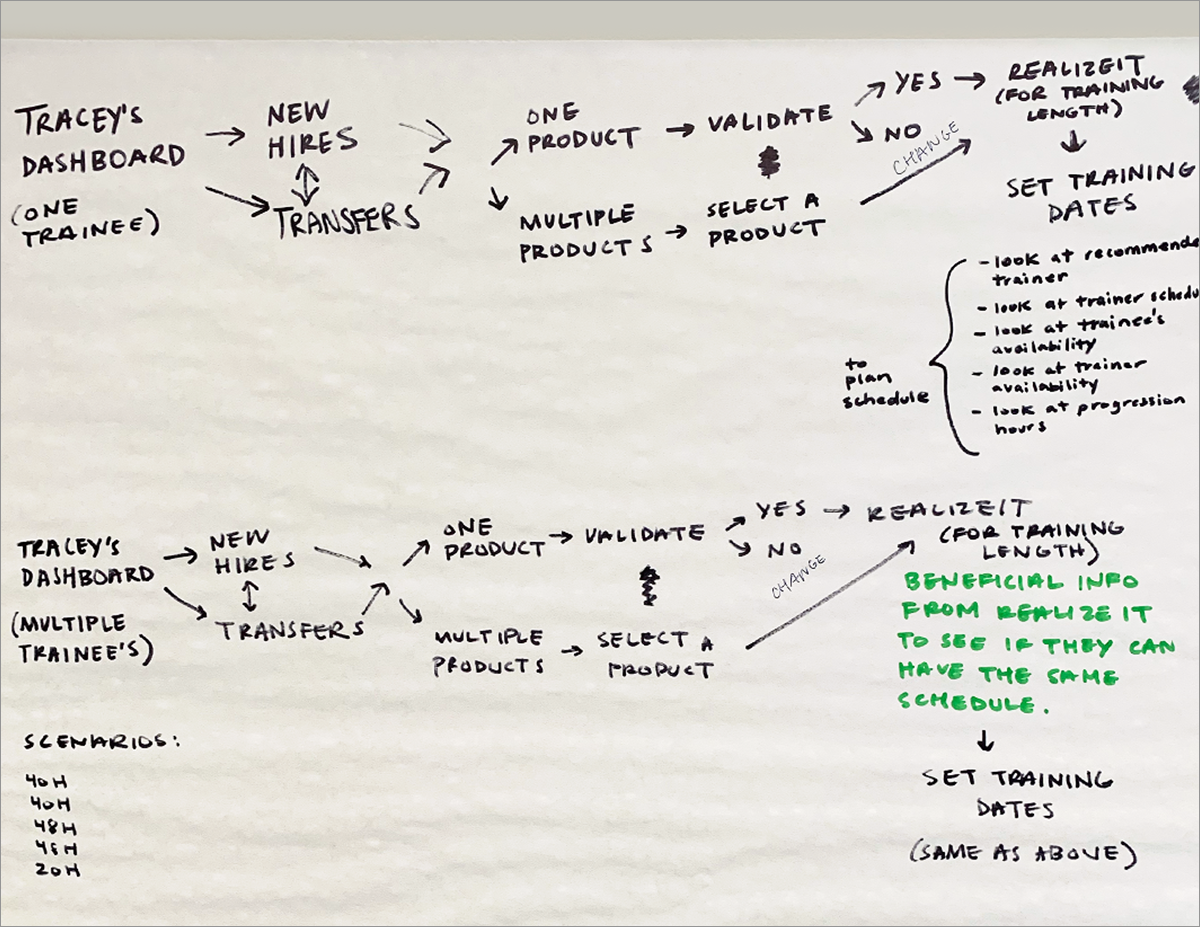 TRACEY'S
DASHBOARD
(ONE
TRAINEE)
NEW
HIRES
TRANSFERS
ONE
PRODUCT
MULTIPLE
PRODUCTS
VALIDATE
SELECT A
PRODUCT
YES
NO
CHANGE
REALIZEIT
(FOR TRAINING
LENGTH)
SET TRAINING
DATES
to
plan
schedule
- look at
trainer
- look at trainer
- look at trainee's
availability
- look at trainer
availability
- look at progression
hours
TRACEY'S
DASHBOARD
(MULTIPLE
TRAINEE'S)
NEW
HIRES
TRANSFERS
ONE
PRODUCT
MULTIPLE
PRODUCTS
VALIDATE
SELECT A
PRODUCT
YES
NO
CHANGE
REALIZEIT
(FOR TRAINING
LENGTH)
BENEFICIAL INFO
FROM REALIZE IT
TO SEE IF THEY CAN
HAVE THE SAME
SCHEDULE.
SET TRAINING
DATES
(SAME AS ABOVE)
SCENARIOS:
40H
40H
48H
20H